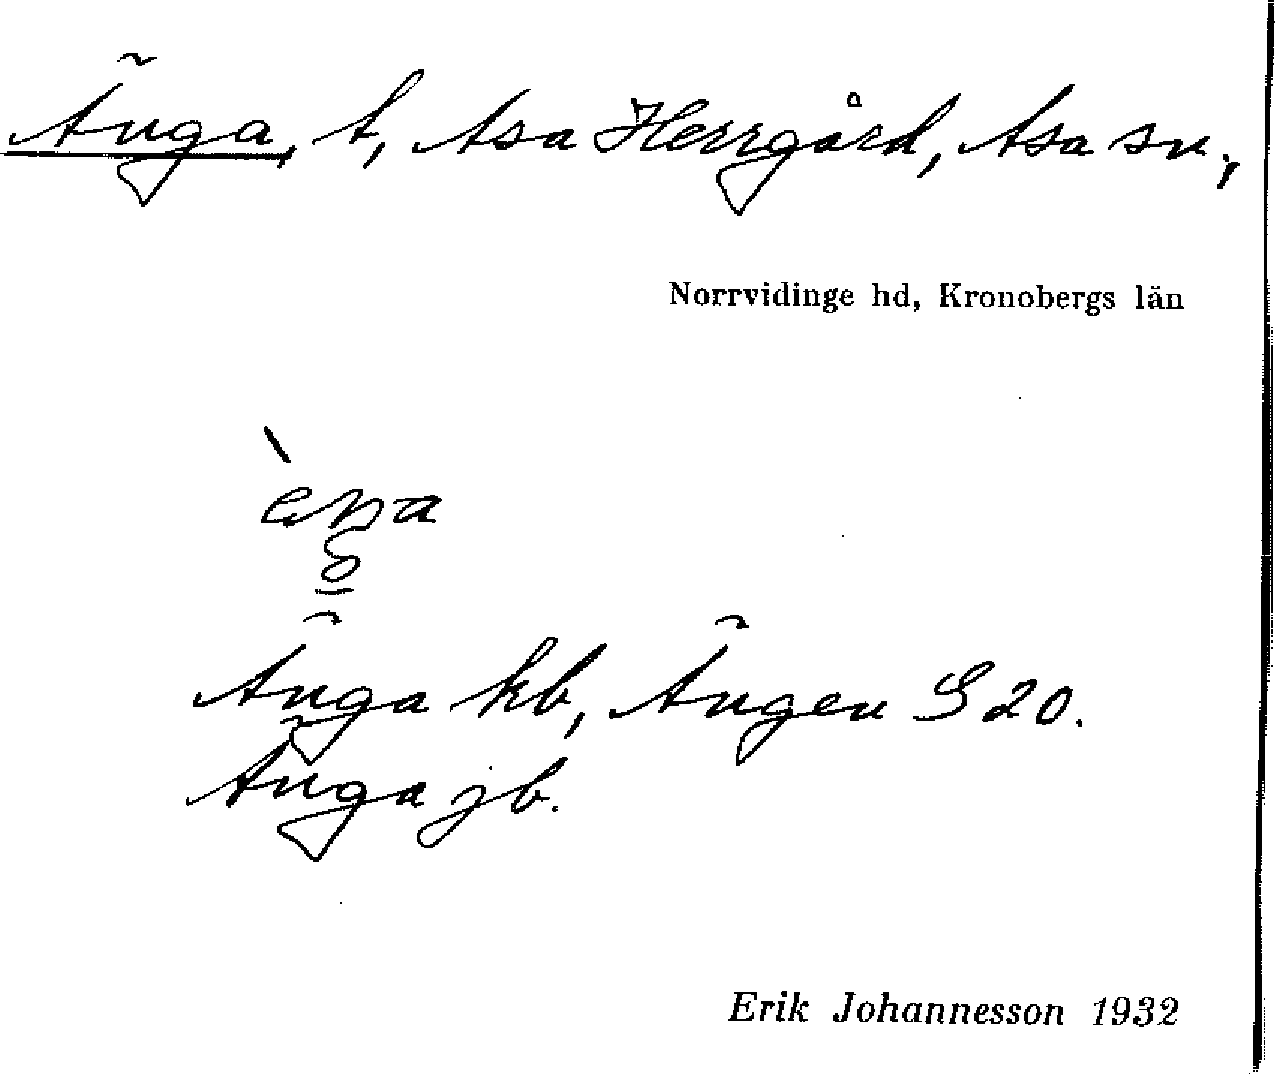 Änga, t, Asa Herrgård, Asa sn.,
Norrvidinge hd, Kronobergs län
èŋa
Änga kb, Ängen S 20.
Änga jb.
Erik Johannesson 1932